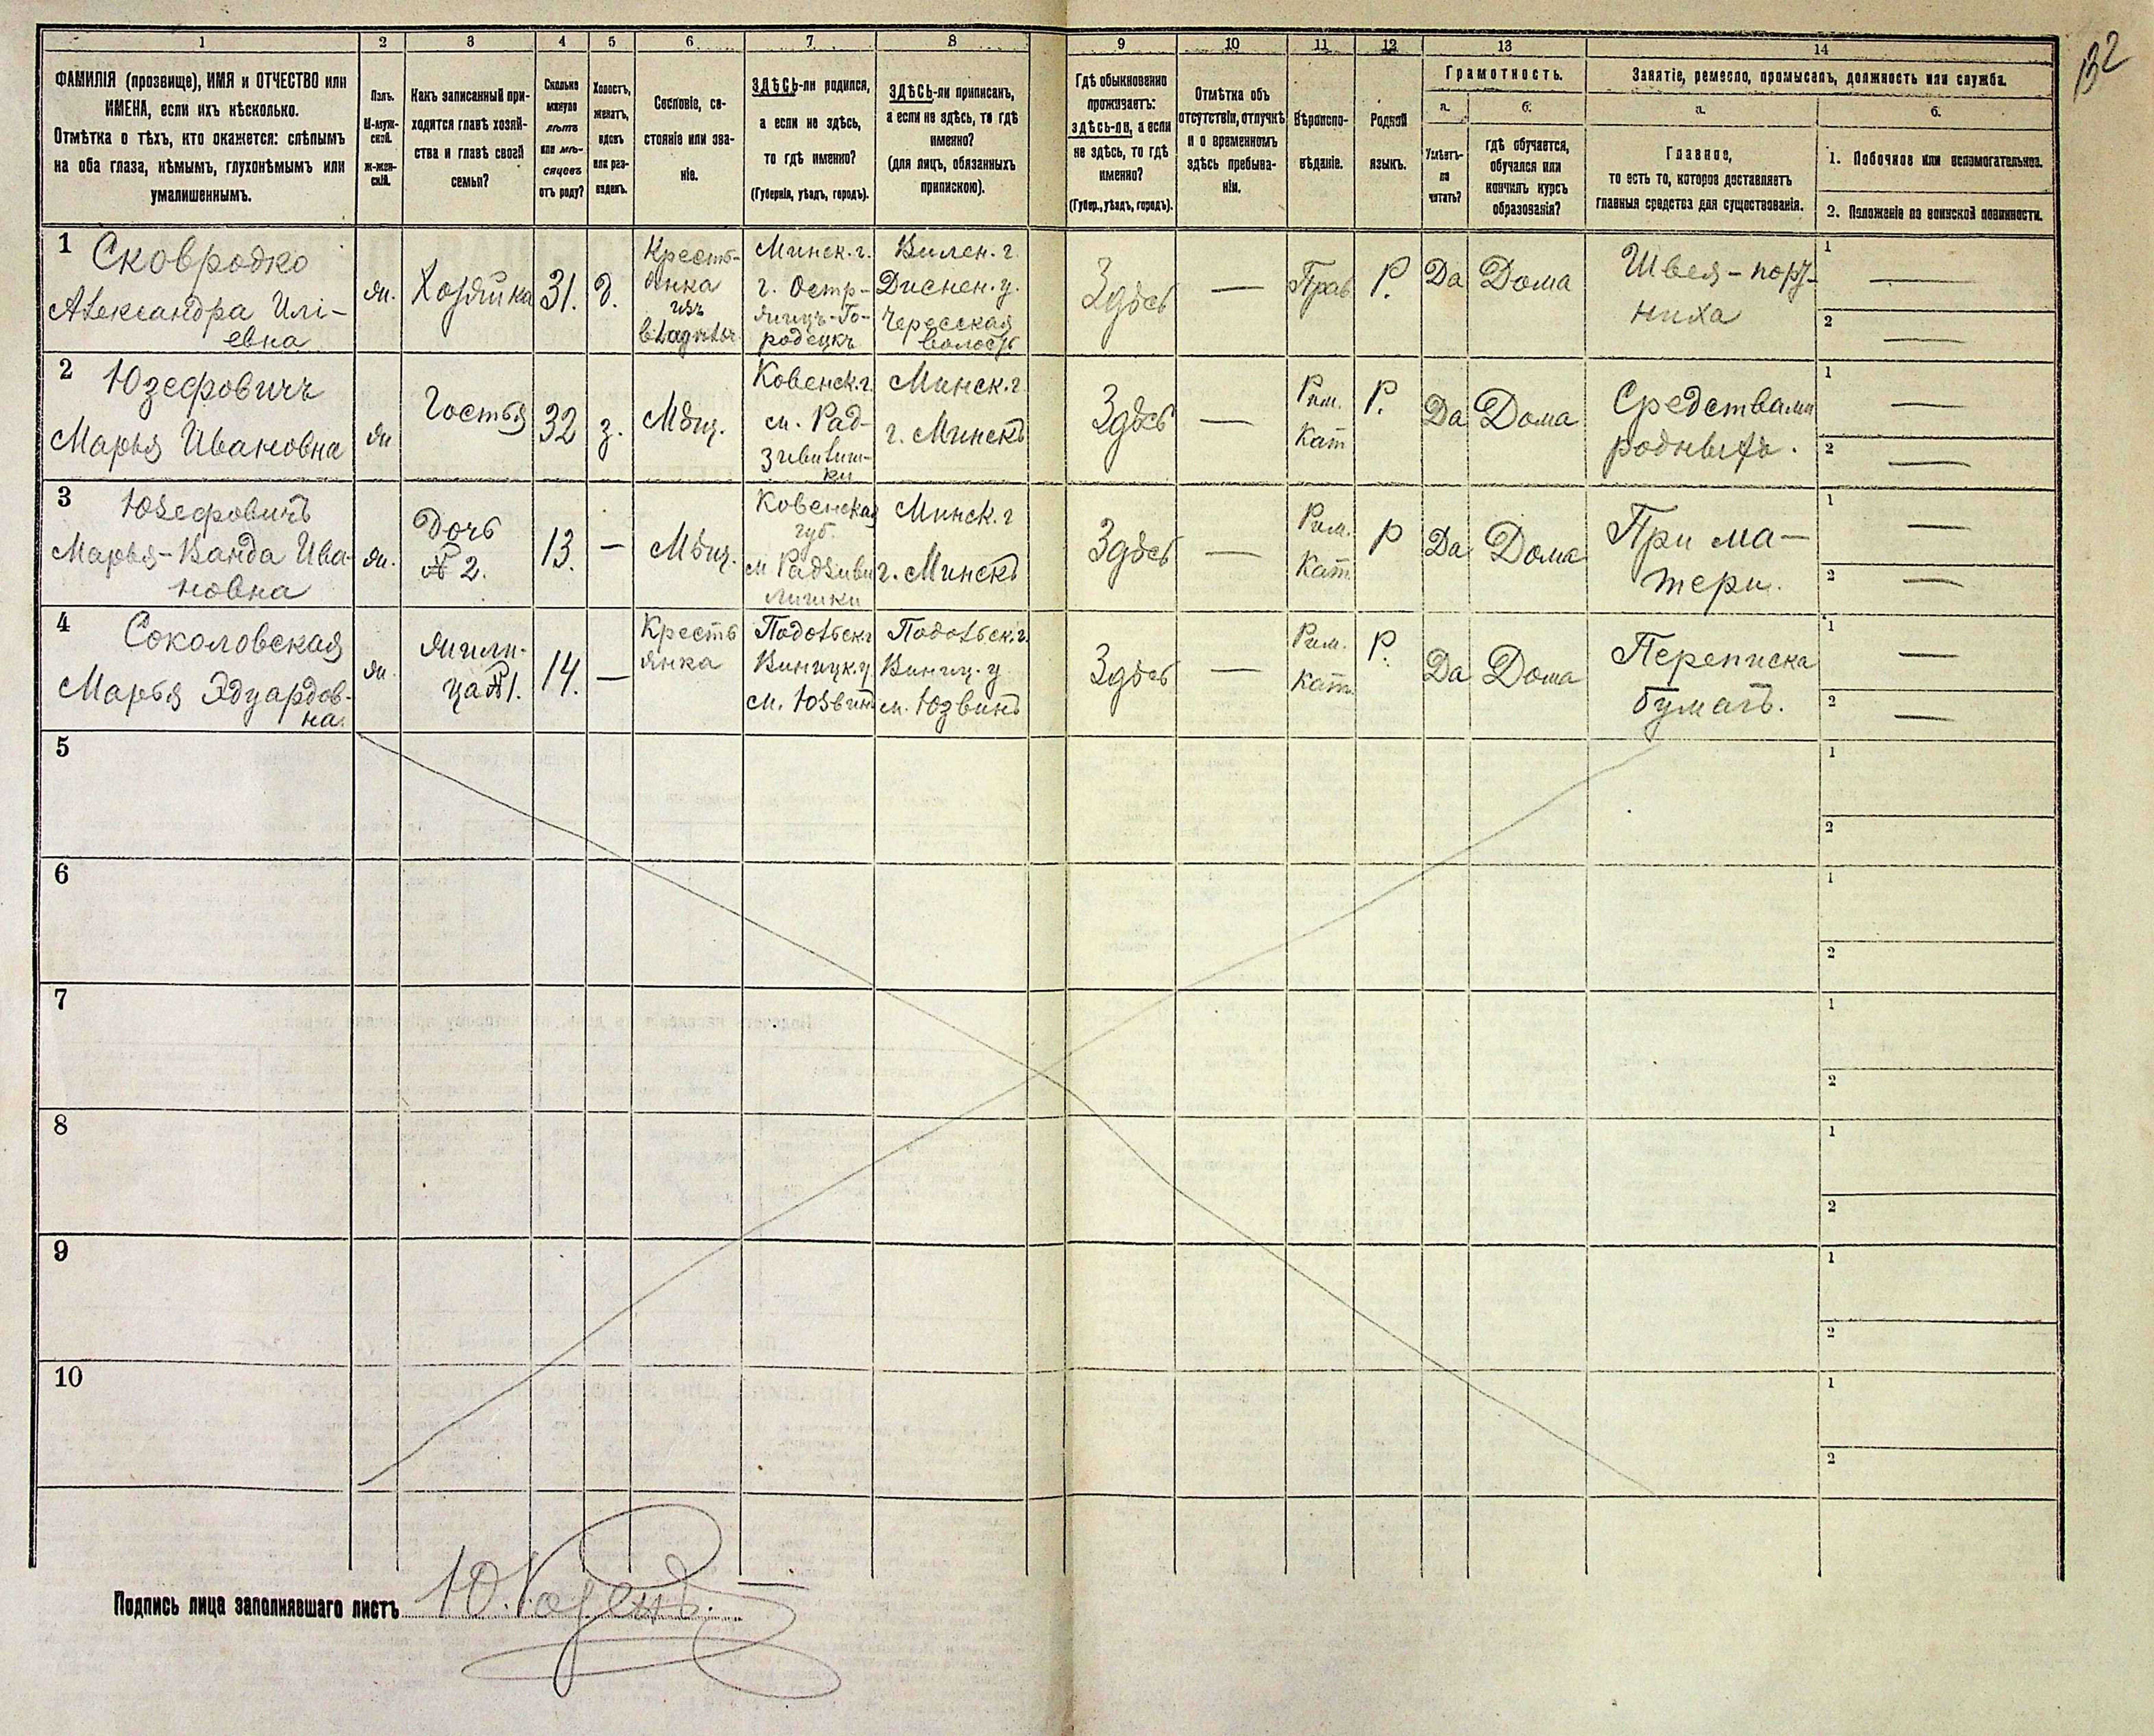 132
1 2 3 4 5 6 7 8 9 10 11 12 13 14
ФАМИЛІЯ (прозвище), ИМЯ и ОТЧЕСТВО или
ИМЕНА, если ихъ нѣсколько.
Отмѣтка о тѣхъ, кто окажется: слѣпымъ
на оба глаза, нѣмымъ, глухонѣмымъ или
умалишеннымъ.
Полъ.
М-муж-
ской.
Ж-жен-
скій.
Какъ записанный при-
ходится главѣ хозяй-
ства и главѣ своей
семьи?
Сколько
минуло
лѣтъ
или мѣ-
сяцевъ
отъ роду?
Холостъ,
женатъ,
вдовъ
или раз-
веденъ.
Сословіе, со-
стояніе или зва-
ніе.
ЗДѢСЬ-ли родился,
а если не здѣсь,
то гдѣ именно?
(Губернія, уѣздъ, городъ).
ЗДѢСЬ-ли приписанъ,
а если не здѣсь, то гдѣ
именно?
(для лицъ, обязанныхъ
припискою).
Гдѣ обыкновенно
проживаетъ:
здѣсь-ли, а если
не здѣсь, то гдѣ
именно?
(Губер., уѣздъ, городъ).
Отмѣтка объ
отсутствіи, отлучкѣ
и о временномъ
здѣсь пребыва-
ніи.
Вѣроиспо-
вѣданіе.
Родной
языкъ.
Грамотность.
а.
Умѣетъ-
ли
читать?
б.
гдѣ обучается,
обучался или
кончилъ курсъ
образованія?
Занятіе, ремесло, промыселъ, должность или служба.
а.
Главное,
то есть то, которое доставляетъ
главныя средства для существованія.
б.
1. Побочное или вспомогательное.
2. Положеніе по воинской повинности.
1 Сковродко
Александра Илі-
евна
ж.
Хозяйка
31.
д.
Кресть-
янка
изъ
Минск. г.
г. Остр-
жицъ-Го-
родецкъ
Вилен. г.
Диснен. у.
Чересская
волость
Здѣсь
—
Прав
Р.
Да
Дома
Швея-пору-
ниха
1 —
2 —
2 Юзефовичъ
Марья Ивановна
ж
Гостья
32
з.
Мѣщ.
Ковенск. г.
м. Рад-
зивилиш-
ки
Минск. г.
г. Минскъ
Здѣсь
—
Рим.
Кат
Р.
Да
Дома
Средствами
родныхъ.
1 —
2 —
3 Юзефовичъ
Марья-Ванда Ива-
новна
ж.
Дочь
№ 2.
13.
—
Мѣщ.
Ковенская
губ.
м Радзиви
лишки
Минск. г
г. Минскъ
Здѣсь
—
Рим.
Кат
Р
Да
Дома
При ма-
тери.
1 —
2 —
4 Соколовская
Марья Эдуардов-
на.
ж.
жили-
ца № 1.
14.
—
Кресть
янка
Подольск г
Виницк. у
м. Юзвинъ
Подольск. г.
Виниц. у
м. Юзвинъ
Здѣсь
—
Рим.
Кат.
Р.
Да
Дома
Переписка
бумагъ.
1 —
2 —
5
1
2
6
1
2
7
1
2
8
1
2
9
1
2
10
1
2
Подпись лица заполнявшаго листъ